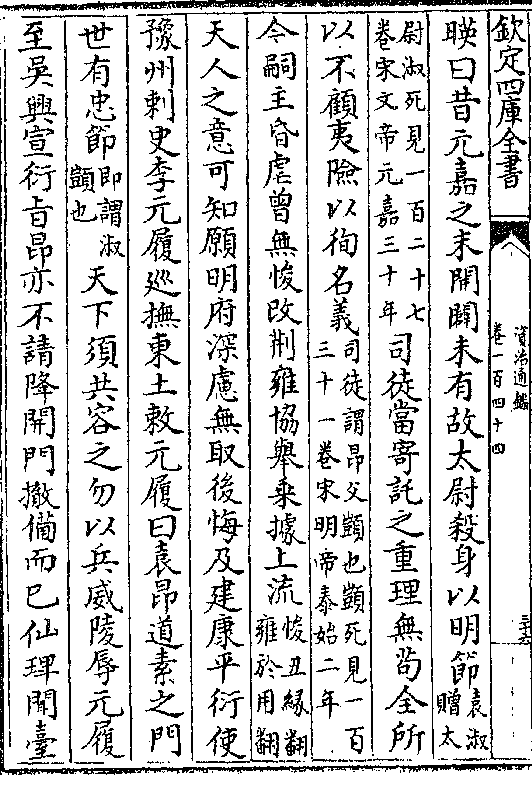 欽定四庫全書
資治通鑑
卷一百四十四
暎曰昔元嘉之末開闢未有故太尉殺身以明節袁淑贈太
尉淑死見一百二十七卷宋文帝元嘉三十年司徒當寄託之重理無苟全所
以不顧夷險以徇名義司徒謂昂父顗也顗死見一百三十一卷宋明帝泰始二年
今嗣主昏虐曾無悛改荆雍協舉乗據上流悛丑縁翻雍於用翻
天人之意可知願明府深慮無取後悔及建康平衍使
豫州刺史李元履廵撫東土敕元履曰袁昂道素之門
世有忠節即謂淑顗也天下須共容之勿以兵威陵辱元履
至吳興宣衍旨昂亦不請降開門撤備而已仙琕聞臺